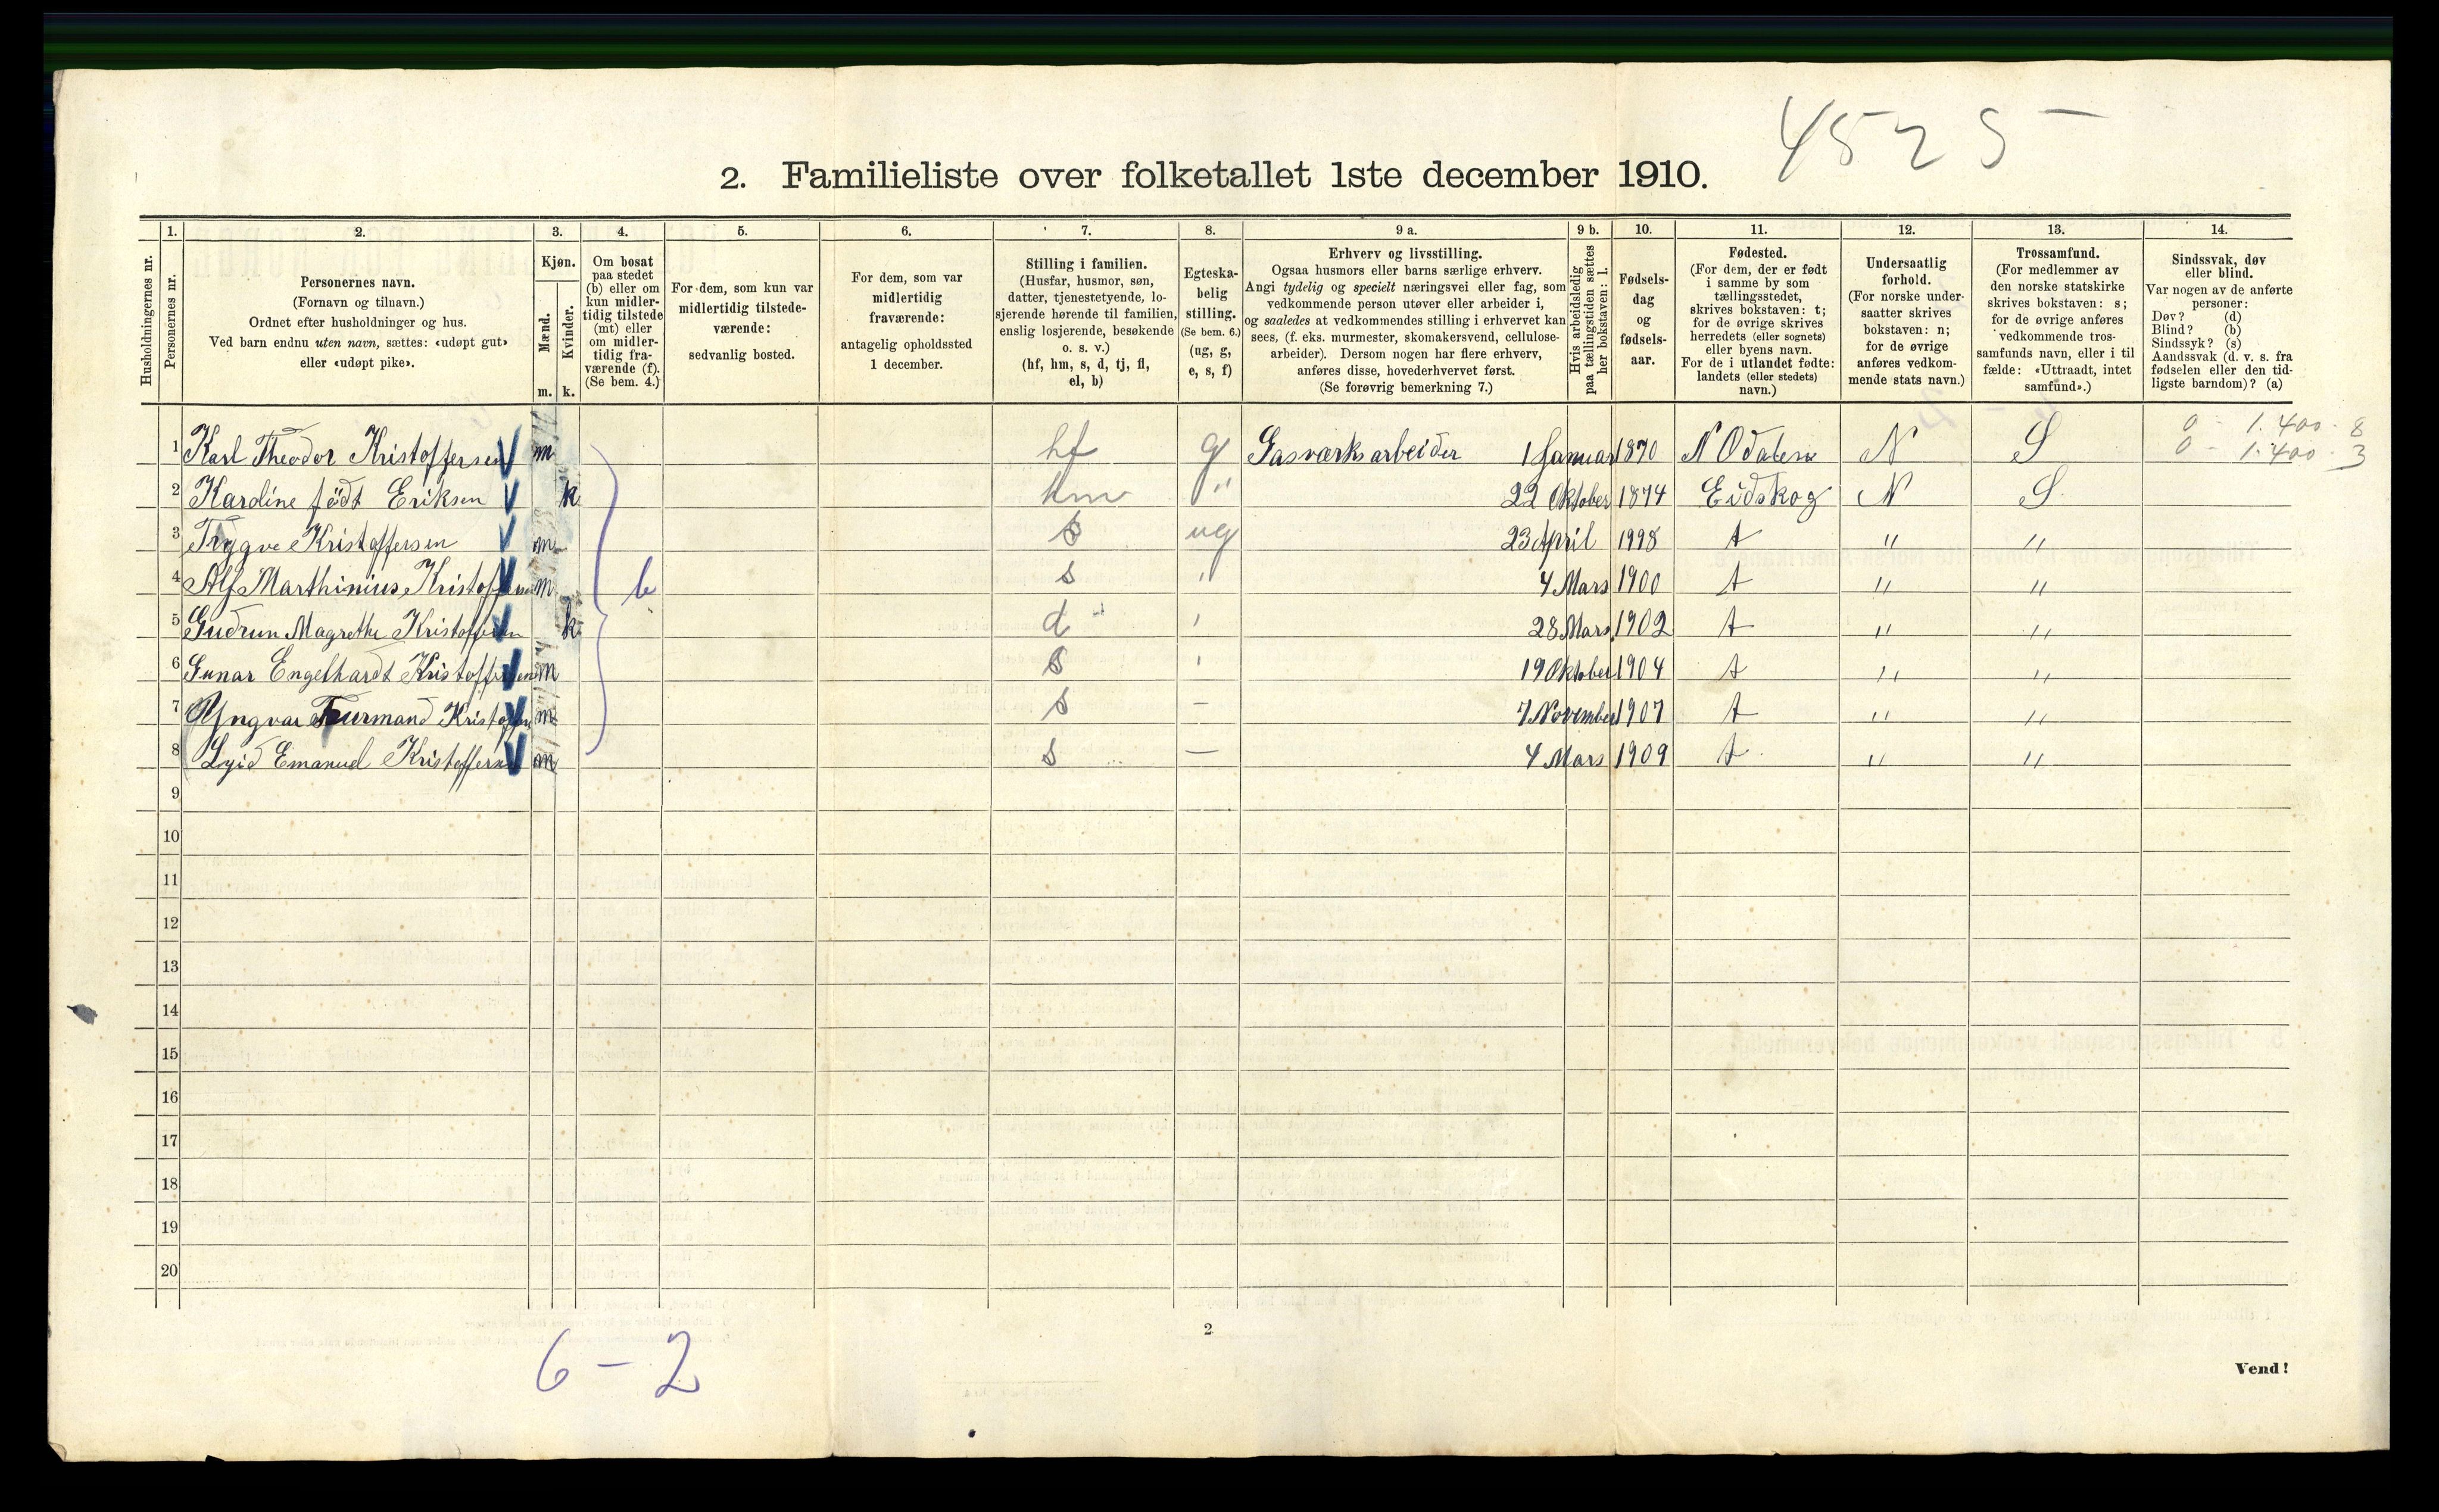 4525-
2. Familieliste over folketallet 1ste december 1910.
1. 2. 3. 4. 5. 6. 7. 8. 9 a. 9 b. 10. 11. 12. 13. 14.
Husholdningernes nr.
Personernes nr.
Personernes navn.
(Fornavn og tilnavn.)
Ordnet efter husholdninger og hus.
Ved barn endnu uten navn, sættes: «udøpt gut»
eller «udøpt pike».
Kjøn.
Mænd.
Kvinder.
m. k.
Om bosat
paa stedet
(b) eller om
kun midler-
tidig tilstede
(mt) eller
om midler-
tidig fra-
værende (f).
(Se bem. 4.)
For dem, som kun var
midlertidig tilstede-
værende:
sedvanlig bosted.
For dem, som var
midlertidig
fraværende:
antagelig opholdssted
1 december.
Stilling i familien.
(Husfar, husmor, søn,
datter, tjenestetyende, lo-
sjerende hørende til familien,
enslig losjerende, besøkende
o. s. v.)
(hf, hm, s, d, tj, fl,
el, b)
Egteska-
belig
stilling.
(Se bem. 6.)
(ug, g,
e, s, f)
Erhverv og livsstilling.
Ogsaa husmors eller barns særlige erhverv.
Angi tydelig og specielt næringsvei eller fag, som
vedkommende person utøver eller arbeider i,
og saaledes at vedkommendes stilling i erhvervet kan
sees, (f. eks. murmester, skomakersvend, cellulose-
arbeider). Dersom nogen har flere erhverv,
anføres disse, hovederhvervet først.
(Se forøvrig bemerkning 7.)
Hvis arbeidsledig
paa tællingstiden sættes
her bokstaven: l.
Fødsels-
dag
og
fødsels-
aar.
Fødested.
(For dem, der er født
i samme by som
tællingsstedet,
skrives bokstaven: t;
for de øvrige skrives
herredets (eller sognets)
eller byens navn.
For de i utlandet fødte:
landets (eller stedets)
navn.)
Undersaatlig
forhold.
(For norske under-
saatter skrives
bokstaven: n;
for de øvrige
anføres vedkom-
mende stats navn.)
Trossamfund.
(For medlemmer av
den norske statskirke
skrives bokstaven: s;
for de øvrige anføres
vedkommende tros-
samfunds navn, eller i til
fælde: «Uttraadt, intet
samfund».)
Sindssvak, døv
eller blind.
Var nogen av de anførte
personer:
Døv? (d)
Blind? (b)
Sindssyk? (s)
Aandssvak (d. v. s. fra
fødselen eller den tid-
ligste barndom)? (a)
0 - 1.400 - 8
0 - 1.400 - 3
1 Karl Theodor Kristoffersen m hf g Gasværksarbeider 1 Januar 1870 N Odalen N S
2 Karoline født Eriksen k hm " 22 Oktober 1874 Eidskog N S
3 Trygve Kristoffersen m s ug 23 April 1998 t " "
4 Alf Marthinius Kristoffersen m b s " 4 Mars 1900 t " "
5 Gudrun Magrethe Kristoffersen k d ' 28 Mars 1902 t " "
6 Gunar Engelhardt Kristoffersen m s ' 19 Oktober 1904 t " "
7 Yngvar Kristoffersen m s - 7 November 1907 t " "
8 Emanuel Kristoffersen m s - 4 Mars 1909 t " "
9
10
11
12
13
14
15
16
17
18
19
20
6 - 2
2
Vend!